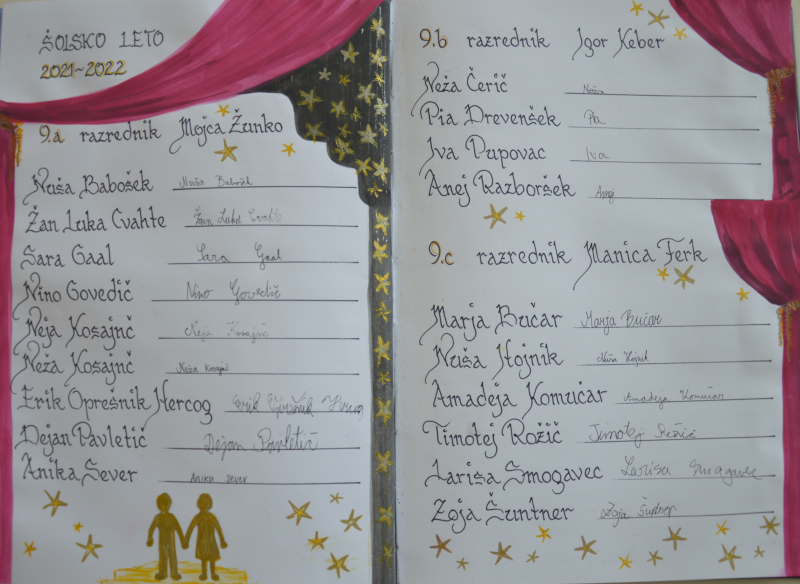 ŠOLSKO LETO
2021-2022
9.a razrednik Mojca Žunko
Nuša Babošek Nuša Babošek
Žan Luka Cvahte Žan Luka Cvahte
Sara Gaal Sara Gaal
Nino Govedič Nino Govedič
Neja Kosajnč Neja Kosajnč
Neža Kosajnč Neža Kosajnč
Erik Oprešnik Hercog Erik Oprešnik Hercog
Dejan Pavletič Dejan Pavletič
Anika Sever Anika Sever
9.b razrednik Igor Keber
Neža Čerič Neža
Pia Drevenšek Pia
Iva Pupovac Iva
Anej Razboršek Anej
9.c razrednik Manica Ferk
Marja Bučar Marja Bučar
Nuša Hojnik Nuša Hojnik
Amadeja Komučar Amadeja Komučar
Timotej Rožič Timotej Rožič
Larisa Smogavec Larisa Smogavec
Zoja Šuntner Zoja Šuntner